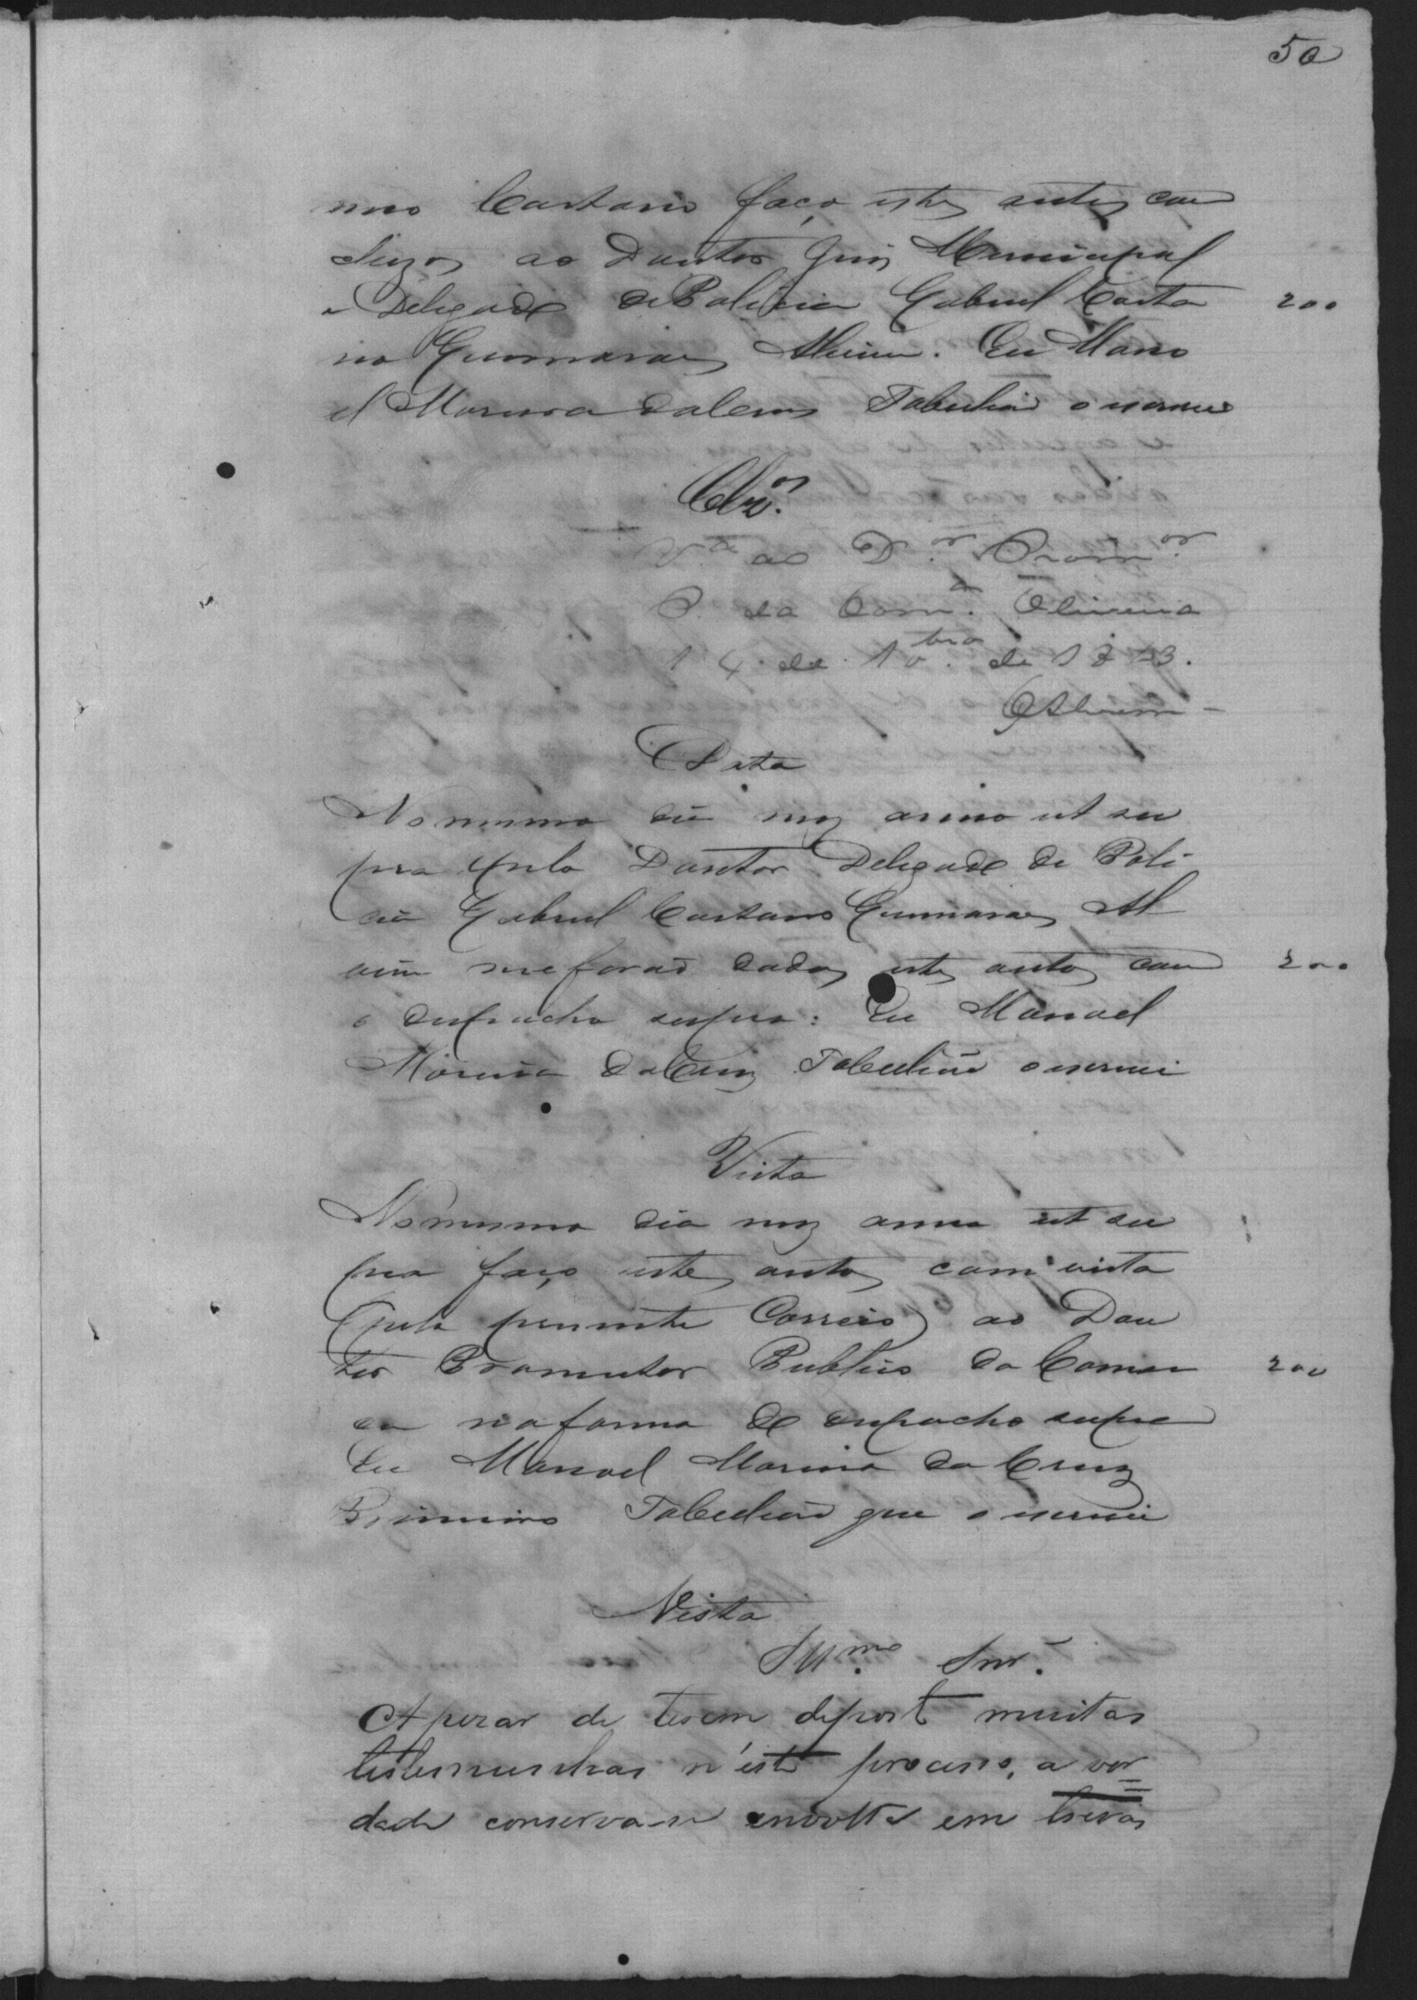 50
meo Caetano faço estes autos con
cluzos ao Doutor Juis Municipal
e Delegado de Policia Gabriel Caeta
200
no Guimaraes Alvim. Eu Mano
el Moreira da Cruz Tabelião o escrevi
Clzos
Vta ao Dor Promor
P. da Comca Oliveira
14 de 10bro de 1873.
GAlvim
Data
No mesmo dia mez anno ut su
pra pelo Doutor Delegado de Poli
cia Gabriel Caetano Guimaraes Al
vim me forão dados estes autos com
200
o despacho supra: Eu Manoel
Moreira da Cruz Tabelião o escrevi
Vista
No mesmo dia mez anno ut su
pra faço estes autos com vista
(pelo presente Correio) ao Dou
tor Promutor Publico da Comar
200
ca na forma do despacho supra
Eu Manoel Moreira da Cruz
Primeiro Tabelião que o escrevi
Vista
Illmo Snr.
Apezar de terem deposto muitas
testemunhas n'este processo, a ver
dade conserva-se envolta em trevas